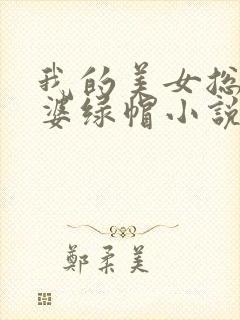 我的美女总
婆绿帽小説
鄭柔美